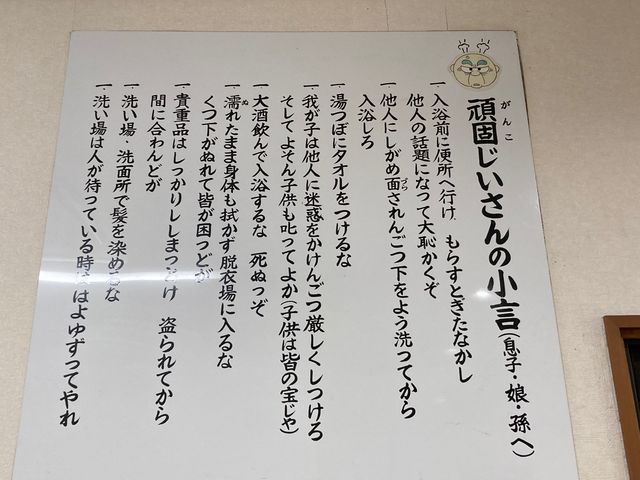 頑固じいさんの小言(息子・娘・孫へ)
がんこ
一、入浴前に便所へ行け もらすときたなかし
他人の話題になって大恥かくぞ
一、他人にしがめ面されんごつ下をよう洗ってから
ヅラ
入浴しろ
一、湯つぼにタオルをつけるな
一、我が子は他人に迷惑をかけんごつ厳しくしつける
そしてよそん子供も叱ってよか(子供は皆の宝じゃ)
一、大酒飲んで入浴するな 死ぬっぞ
一、濡れたまま身体も拭かず脱衣場に入るな
ぬ
くつ下がぬれて皆が困っどが
一、貴重品はしっかりししまっとけ 盗られてから
間に合わんどが
一、洗い場・洗面所で髪を染めるな
一、洗い場は人が待っている時はよゆずってやれ